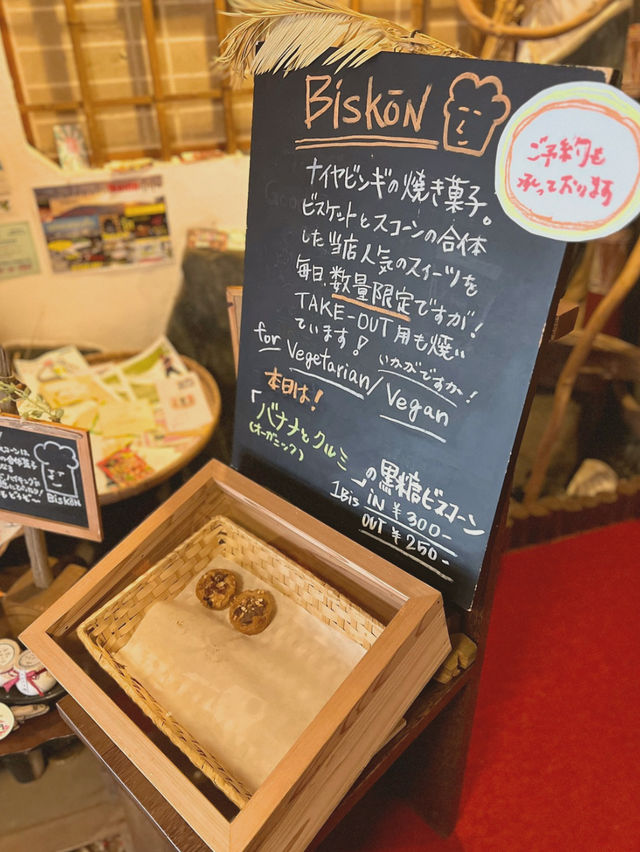 BiskōN
ナイヤビンギの焼き菓子。
ビスケットとスコーンの合体
した当店人気のスイーツを
毎日、数量限定ですが!
TAKE-OUT用も焼い
ています!
いかがですか!
for Vegetarian/Vegan
本日は!
「バナナとクルミ
(オーガニック)
」の黒糖ビスコーン
1Bis IN ¥300-
OUT ¥250-
ご予約も
承っております
BiskōN